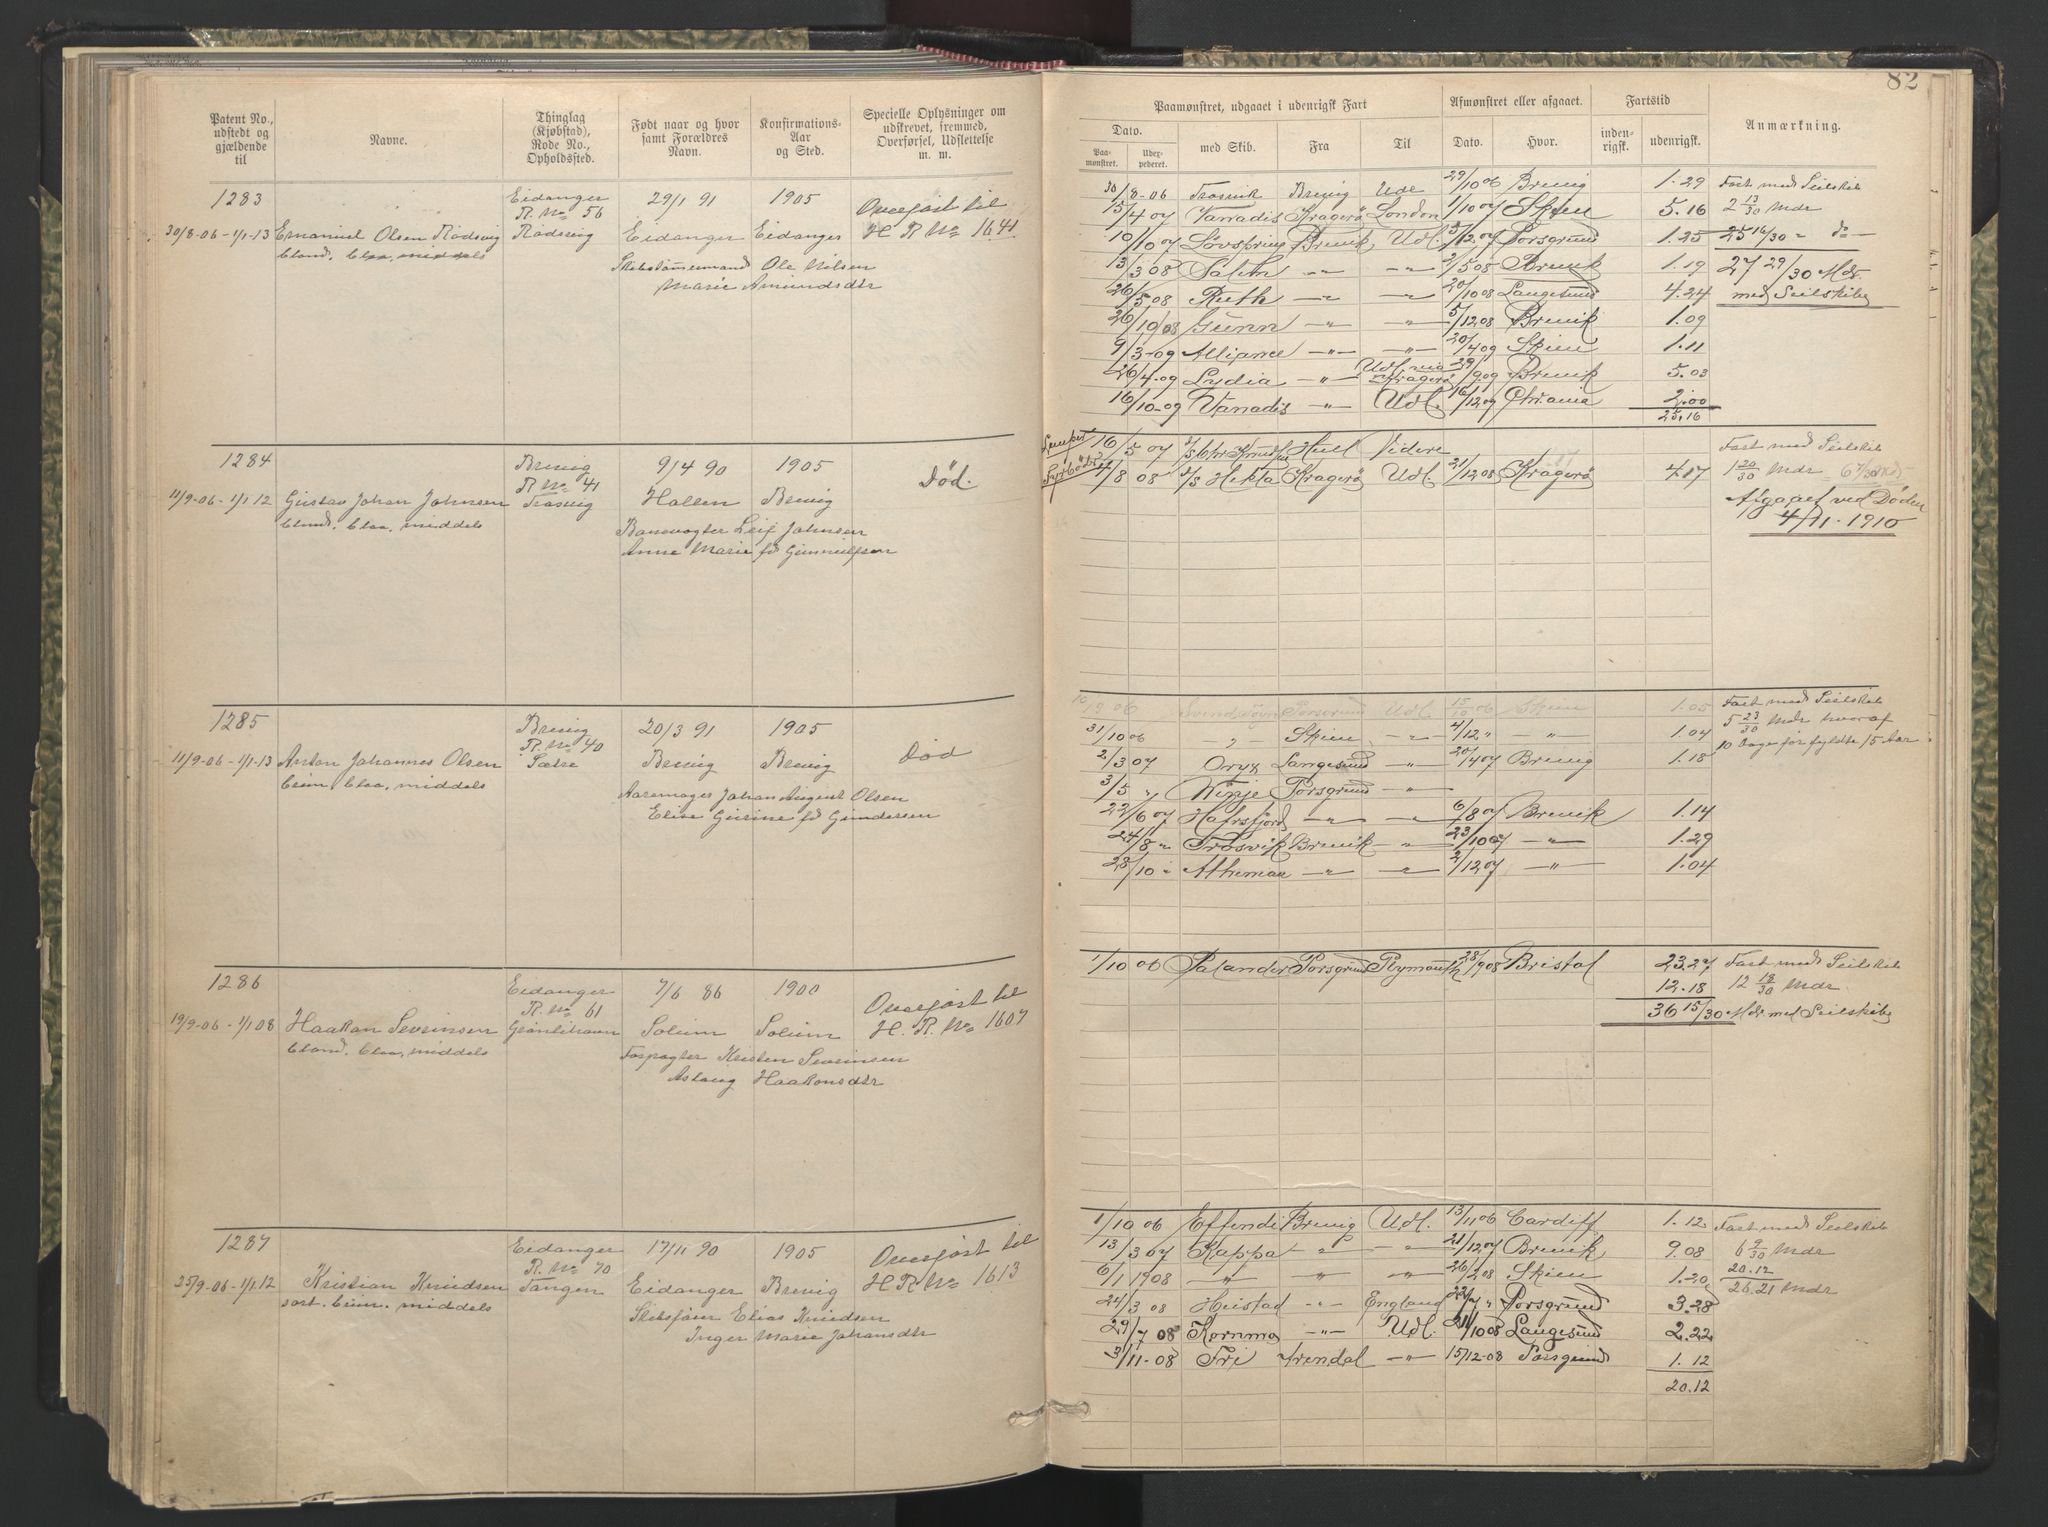 82
Patent No., udstedt og gjældende til
Navne.
Thinglag (Kjøbstad), Rode No., Opholdssted.
Født naar og hvor samt Forældres Navn.
Konfirmations-Aar og Sted.
Specielle Oplysninger om udskrevet, fremmed, Overførsel, Udslettelse m. m.
1283
30/8-06 - 1/1-13
Emanuel Olsen Rødsvig
blond, blaa, middels
Eidanger
R. No 56
Rødsvig
29/1 91
Eidanger
1905
Eidanger
Skibstømmermand Ole Nilsen
Marie Amundsdtr
Overført til
H R No 1641
1284
11/9-06 - 1/1 12
Gustav Johan Johnsen
blond, blaa, middels
Brevig
R No 41
Trosvig
9/4 90
Hollen
1905
Brevig
Banevogter Leif Johnsen
Anne Marie fd Gunnulfsen
Død.
1285
11/9-06 - 1/1-13
Anton Johannes Olsen
brun, blaa, middels
Brevig
R. No 40
Sætre
20/3 91
Brevig
1905
Brevig
Aaremager Johan August Olsen
Elise Gurine fd Gundersen
Død
1286
19/9-06 - 1/1 08
Haakon Severinsen
blond, blaa, middels
Eidanger
R. No 61
Grønlihavn
7/6 86
Solum
1900
Solum
Forpagter Kristen Severinsen
Aslaug Haakonsdtr
Overført til
H. R. No 1607
1287
25/9-06 - 1/1 12
Kristian Knudsen
sort, brun, middels
Eidanger
R. No 70
Tangen
17/11 90
Eidanger
1905
Brevig
Skibsfører Elias Knudsen
Inger Marie Johansdtr
Overført til
H R No 1613
Paamønstret, udgaaet i udenrigsk Fart
Afmønstret eller afgaaet.
Fartstid
Anmærkning.
Dato.
Paamønstret.
Udexpederet.
med Skib.
Fra
Til
Dato.
Hvor.
indenrigsk.
udenrigsk.
30/8-06 Trosvik Brevig Udl 29/10 06 Brevig 1.29
15/4 07 Vanadis Kragerø London 1/10 07 Skien 5.16
10/10 07 Løvspring Brevik Udl. 5/12 07 Porsgrund 1.25
13/3 08 Salem -"- -"- 2/5 08 Brevik 1.19
26/5 08 Ruth -"- -"- 20/10 08 Langesund 4.24
26/10 08 Gunn -"- -"- 5/12 08 Brevik 1.09
9/3-09 Alliance -"- -"- 20/4 09 Skien 1.11
26/4-09 Lydia -"- Udl via Kragerø 29/9 09 Brevik 5.03
16/10-09 Vanadis -"- Udl. 16/12 09 Chr.ania 2.00
25.16
Fart med Seilskib
2 13/30 Mdr
25 16/30 " do
27 29/30 Mdr.
med Seilskibe
Lemper 16/5 07 Hull Videre
Fyrbøder 4/8 08 D/S Hekla Kragerø Udl. 21/12 08 Kragerø 4.17
Fart med Seilskib
1 20/30 Mdr
Afgaaet ved Døden
4/11-1910
10/9 06 Svend Føyn Porsgrund Udl. 15/10 06 Skien 1.05
31/10 06 " Skien -"- 4/12 " -"- 1.04
2/3 07 Oryx Langesund -"- 20/4 07 Brevig 1.18
3/5 " Vipje Porsgrund -"-
22/6 07 Hafrsfjord -"- -"- 6/8 07 Brevik 1.14
24/8 " Trosvik Brevik -"- 23/10 07 -"- 1.29
28/10 " Athenian -"- -"- 2/12 07 -"- 1.04
Fart med Seilskib
5 23/30 Mdr hvoraf
10 Dage før fyldte 15 Aar
1/10 06 Salander Porsgrund Plymouth 28/9 08 Bristol 23.27
12.18
36 15/30 Mdr med Seilskibe
Fart med Seilskib
12 18/30 Mdr
1/10 06 Effendi Brevig Udl. 13/11 06 Cardiff 1.12
13/3 07 Kappa -"- -"- 21/12 07 Brevik 9.08
6/1 1908 -"- -"- -"- 26/2 08 Skien 1.20
24/3 08 Heistad -"- England 22/7 " Porsgrund 3.28
29/7 08 Kornmo -"- Udl. 21/10 08 Langesund 2.22
3/11-08 Fri Arendal -"- 15/12-08 Porsgrund 1.12
20.12
Fart med Seilskib
6 9/30 Mdr
20.12
26.21 Mdr